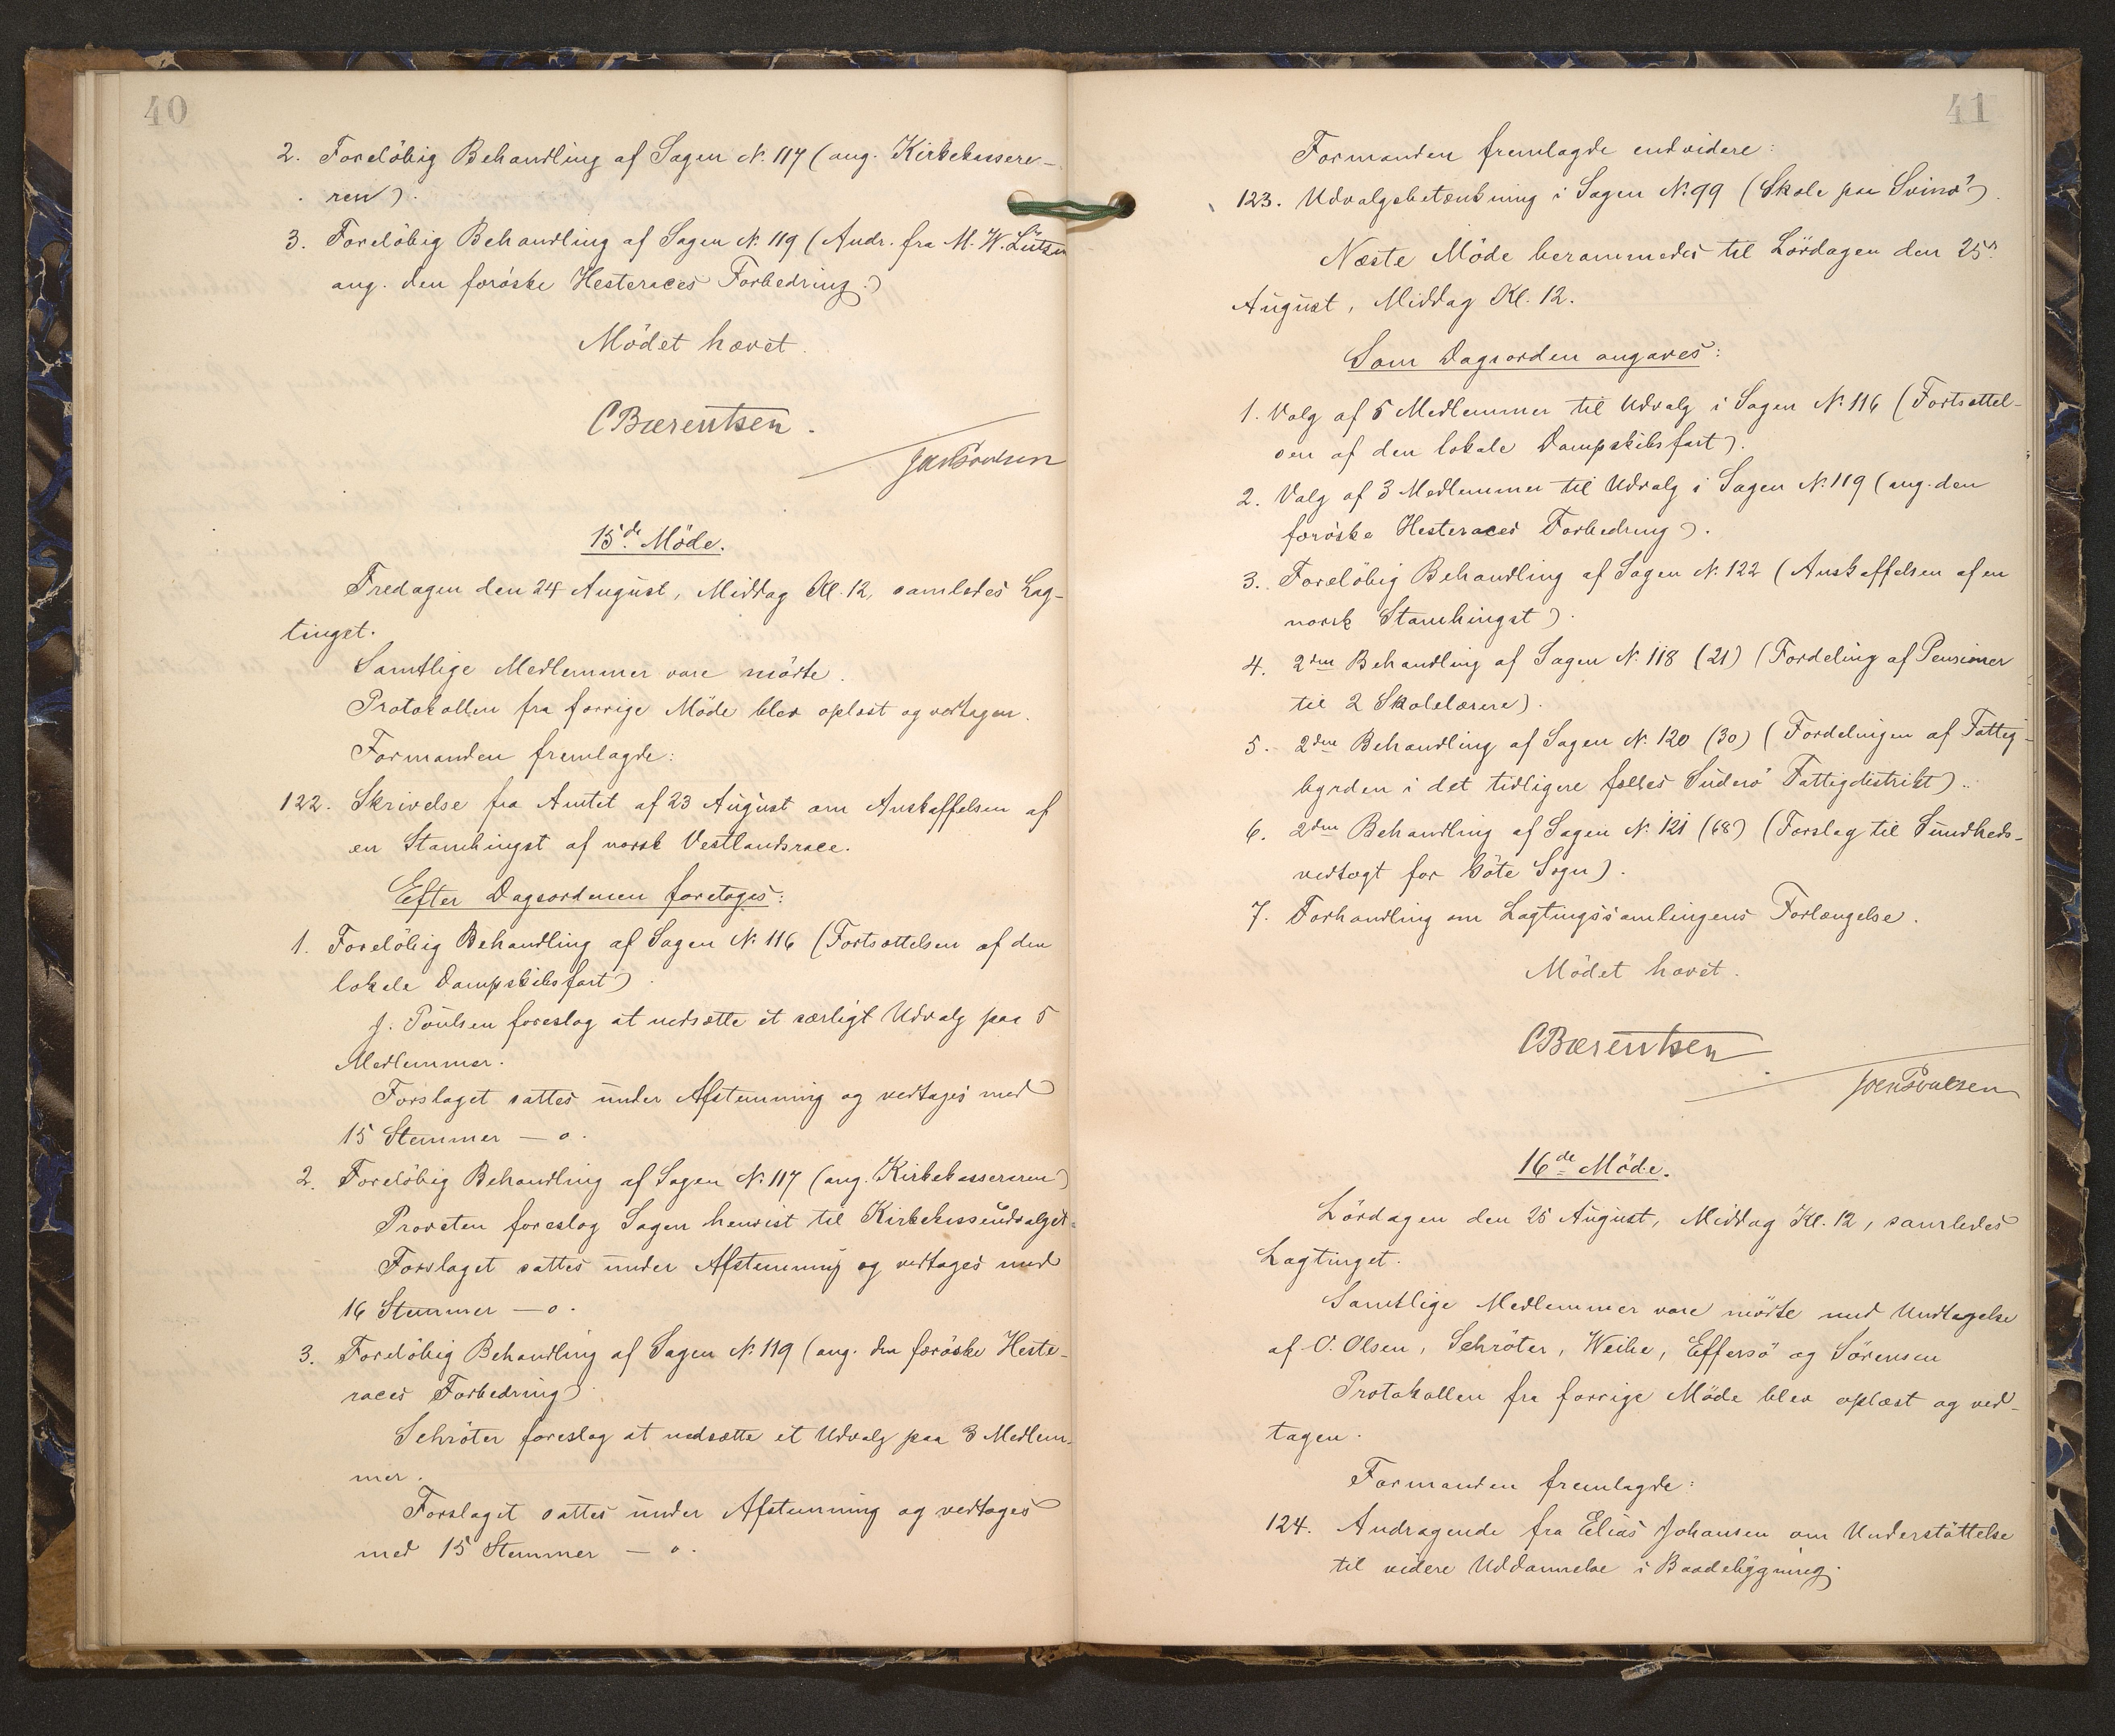 40
2. Foreløbig Behandling af Sagen N. 117 (ang. Kirkekassere-
ren).
3. Foreløbig Behandling af Sagen N. 119 (Andr. fra M. W. Lützen
ang. den færøske Hesteraces Forbedring.)
Mödet hævet.
CBærentsen.
JoenPoulsen
15de Møde.
Fredagen den 24 August, Middag Kl. 12, samledes Lag-
tinget.
Samtlige Medlemmer vare mødte.
Protokollen fra forrige Møde blev oplæst og vedtagen.
Formanden fremlagde:
122. Skrivelse fra Amtet af 23 August om Anskaffelsen af
en Stamhingst af norsk Vestlandsrace.
Efter Dagsordenen foretoges:
1. Foreløbig Behandling af Sagen N. 116 (Fortsættelsen af den
lokale Dampskibsfart).
J. Poulsen foreslog at nedsætte et særligt Udvalg paa 5
Medlemmer.
Forslaget sattes under Afstemning og vedtoges med
15 Stemmer — o.
2. Foreløbig Behandling af Sagen N. 117 (ang. Kirkekassereren)
Provsten foreslog Sagen henvist til Kirkekasseudvalget.
Forslaget sattes under Afstemning og vedtoges med
16 Stemmer — o.
3. Foreløbig Behandling af Sagen N. 119 (ang. den færøske Heste-
races Forbedring)
Schröter foreslog at nedsætte et Udvalg paa 3 Medlem-
mer.
Forslaget sattes under Afstemning og vedtoges
med 15 Stemmer — o.
41
Formanden fremlagde endvidere:
123. Udvalgsbetænkning i Sagen N. 99 (Skole paa Svinø).
Næste Møde berammedes til Lördagen den 25de
August, Middag Kl. 12.
Som Dagsorden angaves:
1. Valg af 5 Medlemmer til Udvalg i Sagen N. 116 (Fortsættel-
sen af den lokale Dampskibsfart).
2. Valg af 3 Medlemmer til Udvalg i Sagen N. 119 (ang. den
færøske Hesteraces Forbedring).
3. Foreløbig Behandling af Sagen N. 122 (Anskaffelsen af en
norsk Stamhingst).
4. 2den Behandling af Sagen N. 118 (21) (Fordeling af Pensioner
til 2 Skolelærere).
5. 2den Behandling af Sagen N. 120 (30) (Fordelingen af Fattig-
byrden i det tidligere fælles Suderø Fattigdistrikt).
6. 2den Behandling af Sagen N. 121 (68) (Forslag til Sundheds-
vedtægt for Göte Sogn).
7. Forhandling om Lagtingssamlingens Forlængelse.
Mødet hævet.
CBærentsen
JoenPoulsen
16de Møde.
Lördagen den 25 August, Middag Kl. 12, samledes
Lagtinget.
Samtlige Medlemmer vare mødte med Undtagelse
af O. Olsen, Schröter, Weihe, Effersö og Sörensen
Protokollen fra forrige Møde blev oplæst og ved-
tagen.
Formanden fremlagde:
124. Andragende fra Elias Johansen om Understøttelse
til videre Uddannelse i Baadebygning.